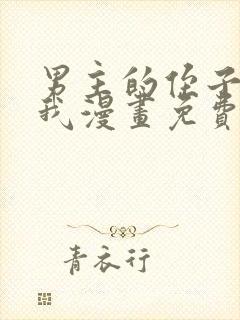 男主的侄子
我漫畫免費
青衣行